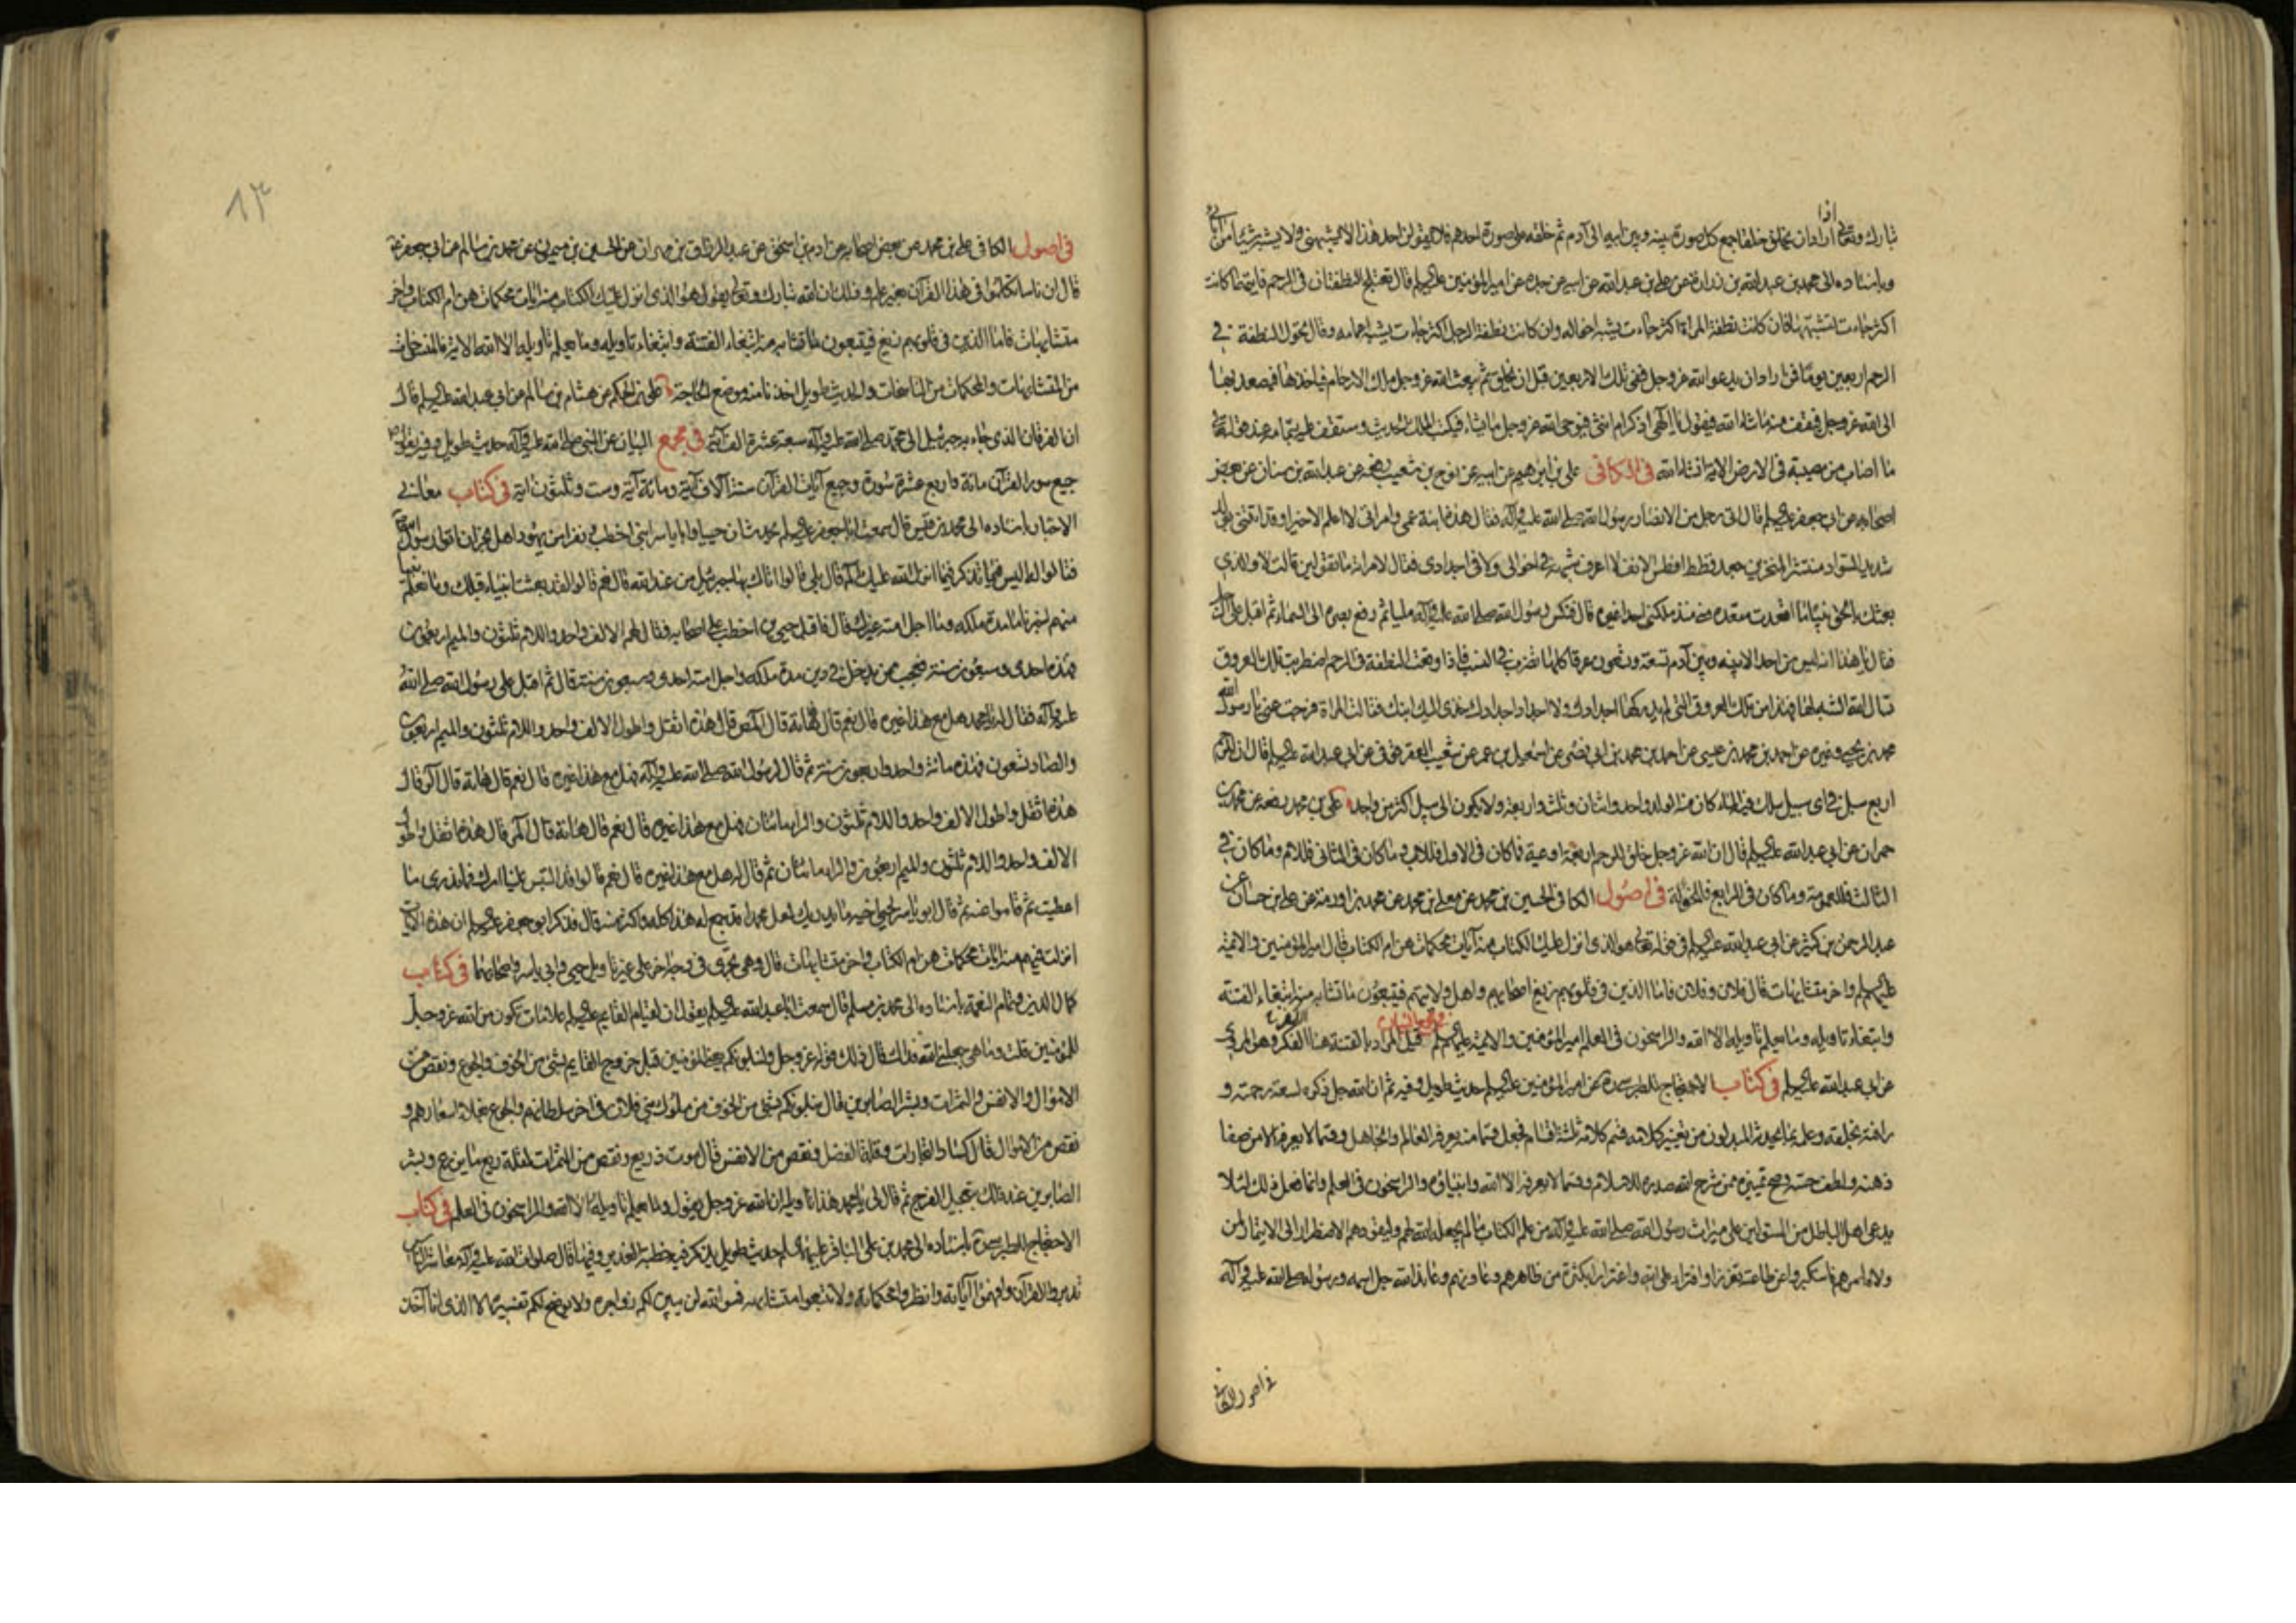 تبارك وتعالى اذا اراد ان يخلق خلقا جمع كل صورة بينه وبين ابيه الى آدم ثم خلقه على صورة احدهم فلا يقولن احد هذا لا يشبهنى ولا يشبه شيئا من آبائى
وباسناده الى محمد بن عبدالله بن زرارة عن على بن عبدالله عن ابيه عن جده عن امير المؤمنين عليه السلام قال تعتلج النطفتان فى الرحم فايتهما كانت
اكثر جاءت تشبهها فان كانت نطفة المراة اكثر جاءت يشبه اخواله وان كانت نطفة الرجل اكثر جاءت يشبه اعمامه وقال تحول النطفة فى
الرحم اربعين يوما فمن اراد ان يدعو الله عز وجل ففى تلك الاربعين قبل ان يخلق ثم يبعث الله عز وجل ملك الارحام فياخذها فيصعد بها
الى الله عز وجل فيقف منه ما شاء الله فيقول يا الهى اذكر ام انثى فيوحى الله عز وجل ما يشاء فيكتب الملك الحديث وستقف عليه بتمامه عند قوله تعالى
ما اصاب من مصيبة فى الارض الاية انشاء الله فى الكافى على بن ابراهيم عن ابيه عن نوح بن شعيب رفعه عن عبدالله بن سنان عن بعض
اصحابه عن ابى جعفر عليه السلام قال اتى رجل من الانصار رسول الله صلى الله عليه وآله فقال هذه ابنة عمى وامراتى لا اعلم الا خيرا وقد اتتنى بولد
شديد السواد منتشر المنخرين جعد قطط افطس الانف لا اعرف شبهه فى اخوالى ولا فى اجدادى فقال لامراته ما تقولين قالت لا والذى
بعثك بالحق نبيا ما اقعدت مقعده منى منذ ملكنى احدا غيره قال فنكس رسول الله صلى الله عليه وآله مليا ثم رفع بصره الى السماء ثم اقبل على الرجل
فقال يا هذا انه ليس من احد الا بينه وبين آدم تسعة وتسعون عرقا كلها تضرب فى النسب فاذا وقعت النطفة فى الرحم اضطربت تلك العروق
تسال الله الشبه لها فهذا من تلك العروق التى لم يدركها اجدادك ولا اجداد اجدادك خذى اليك ابنك فقالت المراة فرجت عنى يا رسول الله
محمد بن يحيى وغيره عن احمد بن محمد بن عيسى عن احمد بن محمد بن ابى نصر عن اسمعيل بن عمر عن شعيب العقرقوفى عن ابى عبدالله عليه السلام قال ان للرحم
اربع سبل فى اى سبيل سلك فيه الماء كان منه الولد واحد واثنان وثلثة واربعة ولا يكون الى سبيل اكثر من واحد على بن محمد رفعه عن محمد بن
حمران عن ابى عبدالله عليه السلام قال ان الله عز وجل خلق للرحم اربعة اوعية فما كان فى الاول فللاب وما كان فى الثانى فللام وما كان فى
الثالث فللعمومة وما كان فى الرابع فللخؤلة فى اصول الكافى الحسين بن محمد عن معلى بن محمد عن محمد بن اورمة عن على بن حسان عن
عبد الرحمن بن كثير عن ابى عبدالله عليه السلام فى قوله تعالى هو الذى انزل عليك الكتاب منه آيات محكمات هن ام الكتاب قال امير المؤمنين والائمة
عليهم السلم واخر متشابهات قال فلان وفلان فاما الذين فى قلوبهم زيغ اصحابهم واهل ولايتهم فيتبعون ما تشابه منه ابتغاء الفتنة
وابتغاء تاويله وما يعلم تاويله الا الله والراسخون فى العلم امير المؤمنين والائمة عليهم السلم فى مجمع البيان قيل المراد بالفتنة هنا الكفر وهو المروى
عن ابى عبدالله عليه السلم فى كتاب الاحتجاج للطبرسى ره عن امير المؤمنين عليه السلم حديث طويل وفيه ثم ان الله جل ذكره لسعة رحمته و
رافته بخلقه وعلمه بما يحدثه المبدلون من تغيير كلامه قسم كلامه ثلثة اقسام فجعل قسما منه يعرفه العالم والجاهل وقسما لا يعرفه الا من صفا
ذهنه ولطف حسه وصح تمييزه ممن شرح الله صدره للاسلام وقسما لا يعرفه الا الله وانبياؤه والراسخون فى العلم وانما فعل ذلك لئلا
يدعى اهل الباطل من المستولين على ميراث رسول الله صلى الله عليه وآله من علم الكتاب ما لم يجعله الله لهم وليقودهم الاضطرار الى الايتمار لمن
ولاه امرهم فاستكبروا عن طاعته تعززا وافتراء على الله واغترارا بكثرة من ظاهرهم وعاونهم وعاند الله جل اسمه ورسوله صلى الله عليه وآله
فى اصول الكافى
٨٣
فى اصول الكافى على بن محمد عن بعض اصحابه عن ادم بن اسحق عن عبد الرزاق بن مهران عن الحسين بن ميمون عن محمد بن سالم عن ابى جعفر ع
قال ان ناسا تكلموا فى هذا القرآن بغير علم وذلك ان الله تبارك وتعالى يقول هو الذى انزل عليك الكتاب منه ايات محكمات هن ام الكتاب واخر
متشابهات فاما الذين فى قلوبهم زيغ فيتبعون ما تشابه منه ابتغاء الفتنة وابتغاء تاويله وما يعلم تاويله الا الله الاية فالمنسوخات
من المتشابهات والمحكمات من الناسخات والحديث طويل اخذنا منه موضع الحاجة على بن الحكم عن هشام بن سالم عن ابى عبدالله عليه السلم قال
ان القرآن الذى جاء به جبرئيل الى محمد صلى الله عليه وآله سبعة عشر الف آية فى مجمع البيان عن النبى صلى الله عليه وآله حديث طويل وفيه يقول ص
جميع سور القرآن مائة واربع عشرة سورة وجميع آيات القرآن ستة آلاف آية ومائتا آية وست وثلثون اية فى كتاب معانى
الاخبار باسناده الى محمد بن قيس قال سمعت ابا جعفر عليه السلم يحدث ان حييا وابا ياسر ابنى اخطب ونفرا من يهود اهل نجران اتوا رسول الله ص
فقالوا له اليس فيما تذكر فيما انزل الله عليك الم قال بلى قالوا اتاك بها جبرئيل من عند الله قال نعم قالوا لقد بعثت انبياء قبلك وما نعلم نبيا
منهم اخبرنا مدة ملكه وما اجل امته غيرك قال فاقبل حيى بن اخطب على اصحابه فقال لهم الالف واحد واللام ثلثون والميم اربعون
فهذه احدى وسبعون سنة فعجب ممن يدخل فى دين مدة ملكه واجل امته احدى وسبعون سنة قال ثم اقبل على رسول الله صلى الله
عليه وآله فقال له يا محمد هل مع هذا غيره قال نعم قال فهاته قال المص قال هذه اثقل واطول الالف واحد واللام ثلثون والميم اربعون
والصاد تسعون فهذه مائة واحد وستون سنة ثم قال لرسول الله صلى الله عليه وآله فهل مع هذا غيره قال نعم قال هاته قال الر قال
هذه اثقل واطول الالف واحد واللام ثلثون والراء مائتان فهل مع هذا غيره قال نعم قال هاته قال المر قال هذه اثقل واطول
الالف واحد واللام ثلثون والميم اربعون والراء مائتان ثم قال له هل مع هذا غيره قال نعم قالوا قد التبس علينا امرك فما ندرى ما
اعطيت ثم قاموا عنه ثم قال ابو ياسر لحيى اخيه ما يدريك لعل محمدا قد جمع له هذا كله واكثر منه قال فذكر ابو جعفر عليه السلم ان هذه الآيات
انزلت فيهم منه ايات محكمات هن ام الكتاب واخر متشابهات قال وهى تجرى فى وجه اخر على غير تاويل حيى وابى ياسر واصحابهما فى كتاب
كمال الدين وتمام النعمة باسناده الى محمد بن مسلم قال سمعت ابا عبدالله عليه السلم يقول ان لقيام القايم عليه السلم علامات تكون من الله عز وجل
للمؤمنين قلت وما هى جعلنى الله فداك قال ذلك قول الله عز وجل ولنبلونكم يعنى المؤمنين قبل خروج القايم بشئ من الخوف والجوع ونقص من
الاموال والانفس والثمرات وبشر الصابرين قال نبلونكم بشئ من الخوف من ملوك بنى فلان فى اخر سلطانهم والجوع بغلاء اسعارهم و
نقص من الاموال قال كساد التجارات وقلة الفضل ونقص من الانفس قال موت ذريع ونقص من الثمرات لقلة ريع ما يزرع وبشر
الصابرين عند ذلك بتعجيل الفرج ثم قال لى يا محمد هذا تاويله ان الله عز وجل يقول وما يعلم تاويله الا الله والراسخون فى العلم فى كتاب
الاحتجاج للطبرسى ره باسناده الى محمد بن على الباقر عليهما السلم حديث طويل يذكر فيه خطبة الغدير وفيها قال صلوات الله عليه وآله معاشر الناس
تدبروا القرآن وافهموا آياته وانظروا محكماته ولا تتبعوا متشابهه فوالله لن يبين لكم زواجره ولا يوضح لكم تفسيره الا الذى انا آخذ